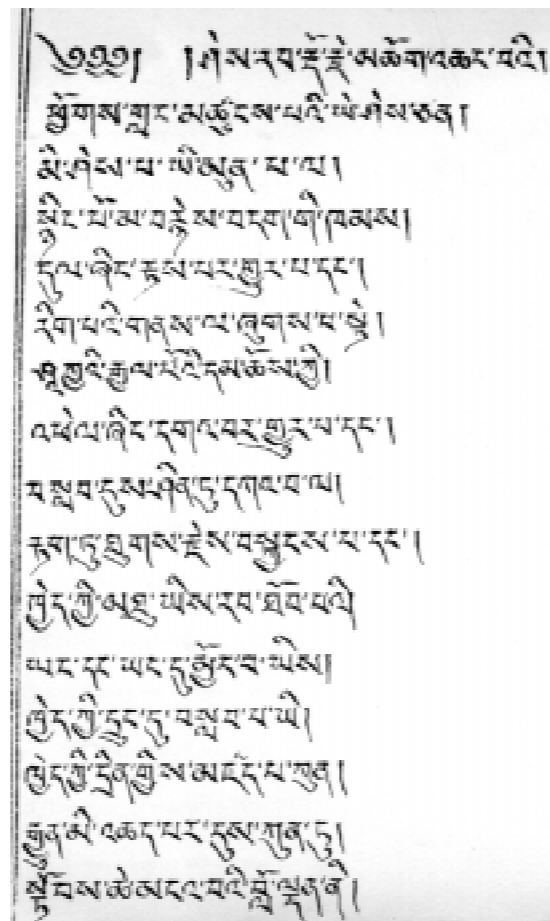 ༄༅༅། །ཤེས་རབ་རྡོ་རྗེ་མཆོག་འཆང་བའི།
ཕྱོགས་གླང་མཚུངས་པའི་ཡེ་ཤེས་ཅན།
མི་ཤེས་པ་ཡི་མུན་པ་ལ།
སྙིང་པོ་མ་བརྙེས་བདག་གི་ཁམས།
དུལ་ཞིང་རྟས་པར་གྱུར་པ་དང་།
རིག་པའི་གནས་ལ་ཞུགས་པ་སྟེ།
ཤཱཀྱའི་རྒྱལ་པོའི་དམ་ཆོས་ཀྱི།
འཕེལ་ཞིང་དགའ་བར་གྱུར་པ་དང་།
བསླབ་དུས་ཤིན་ཏུ་དཀའ་བ་ལ།
རྟག་ཏུ་ཐུགས་རྗེས་བསྐྱངས་པ་དང་།
ཁྱེད་ཀྱི་མཐུ་ཡིས་རབ་ཐོབ་པའི།
ཡང་དང་ཡང་དུ་སྦྱོར་བ་ཡིས།
ཁྱེད་ཀྱི་དྲུང་དུ་བསླབ་པ་ཡི།
ཁྱེད་ཀྱི་དྲིན་གྱིས་མཛད་པ་ཀུན།
རྒྱུན་མི་འཆད་པར་དུས་ཀུན་ཏུ།
སྟོབས་ཆེ་མངའ་བའི་བློ་ལྡན་ནི།